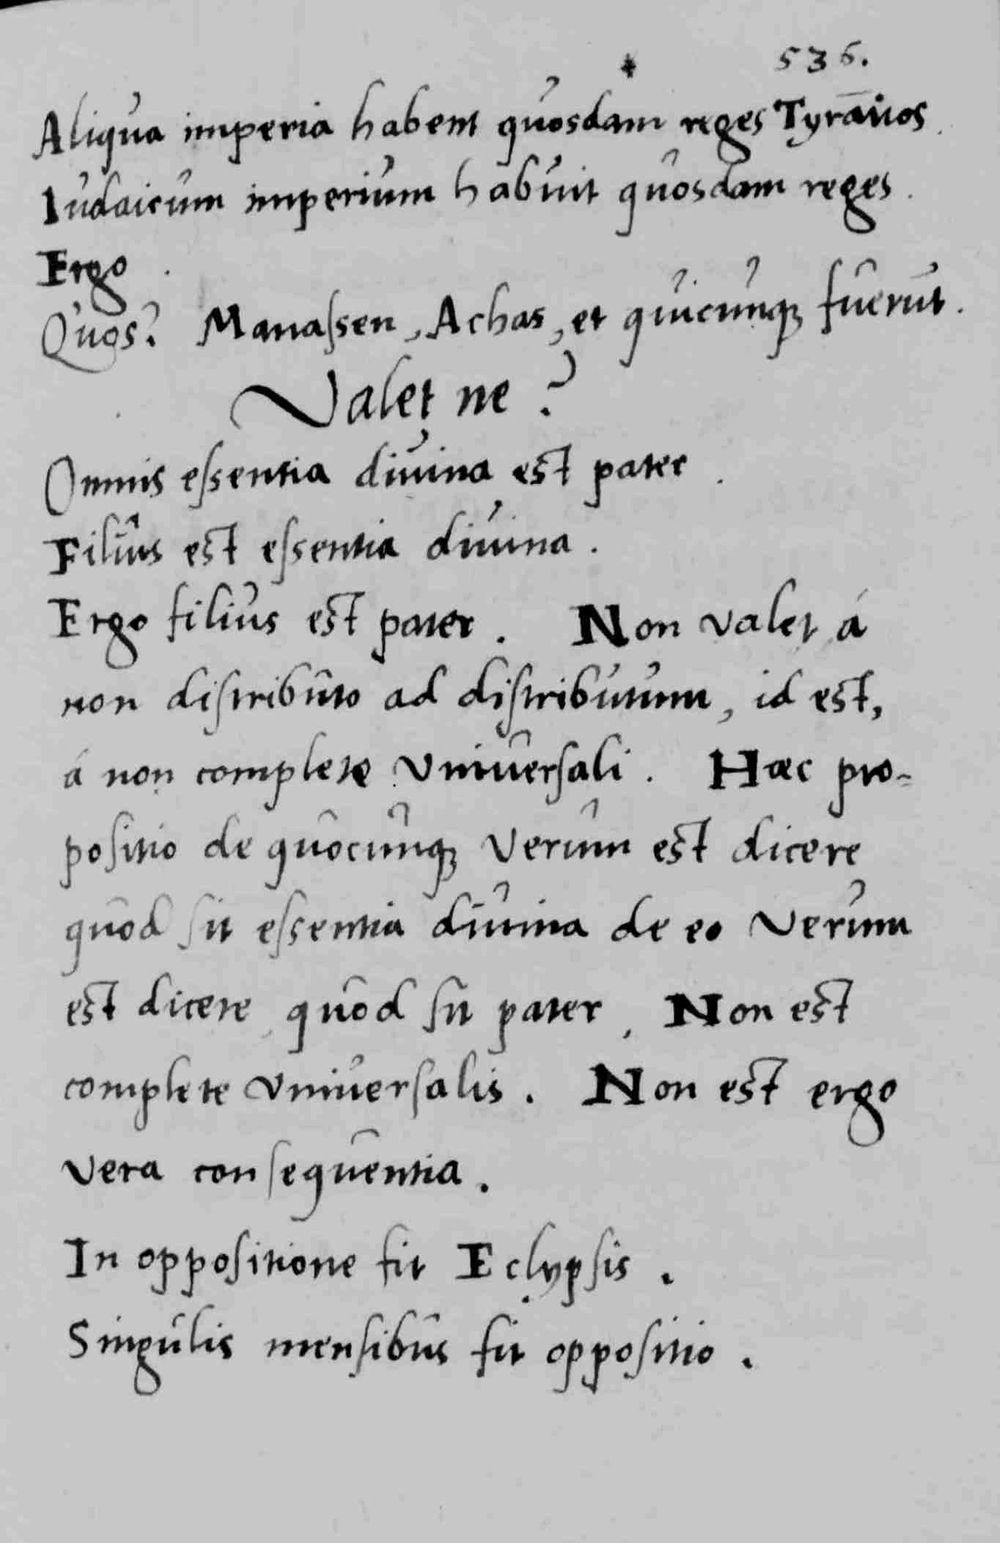 536.
Aliqua imperia habent quosdam reges Tyrãnos.
Iudaicum imperium habuit quosdam reges.
Ergo.
Quos? Manaſsen, Achas, et quicunqꝫ fuerūt.
Valet ne?
Omnis eſsentia diuina est pater.
Filius est eſsentia diuina.
Ergo filius est pater. Non valet á
non diſtributo ad diſtributum, id est,
á non complete vniuerſali. Haec pro-
poſitio de quocunqꝫ verum est dicere
quod ſit eſsentia diuina de eo verum
est dicere quod ſit pater, Non est
complete vniuerſalis. Non est ergo
vera conſequentia.
In oppoſitione fit Eclypſis.
Singulis menſibus fit oppoſitio.